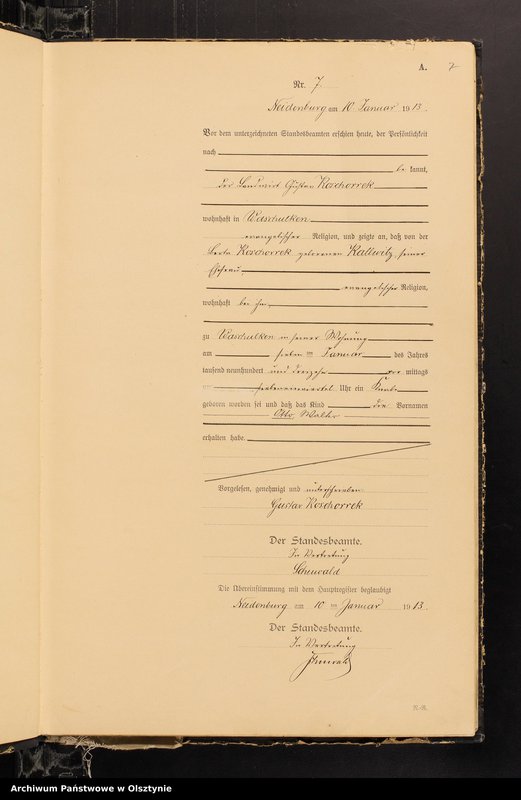 A. 7
Nr. 7
Neidenburg am 10 Januar 1913.
Vor dem unterzeichneten Standesbeamten erschien heute, der Persönlichkeit
nach
be kannt,
der Landwirt Gustav Koschorrek
wohnhaft in Waschulken
evangelischer Religion, und zeigte an, daß von der
Berta Koschorrek geborenen Kallwitz, seiner
Ehefrau
evangelischer Religion,
wohnhaft bei ihm,
zu Waschulken in seiner Wohnung
am sieben ten Januar des Jahres
tausend neunhundert und dreizehn vor mittags
um Uhr ein Knabe
geboren worden sei und daß das Kind die Vornamen
Otto Walter
erhalten habe.
Vorgelesen, genehmigt und unterschrieben
Gustav Koschorrek
Der Standesbeamte.
In Vertretung
Die Übereinstimmung mit dem Hauptregister beglaubigt
Neidenburg am 10 ten Januar 1913.
Der Standesbeamte.
In Vertretung
Archiwum Państwowe w Olsztynie